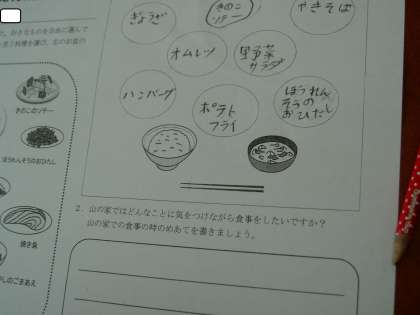 ぎょうざ
きのこ
ソテー
やきそば
オムレツ
野菜
サラダ
ハンバーグ
ポテト
フライ
ほうれん
そうの
おひたし
きのこのソテー
ほうれんそうのおひたし
焼き魚
のごまあえ
2. 山の家ではどんなことに気をつけながら食事をしたいですか？
山の家での食事の時のめあてを書きましょう。